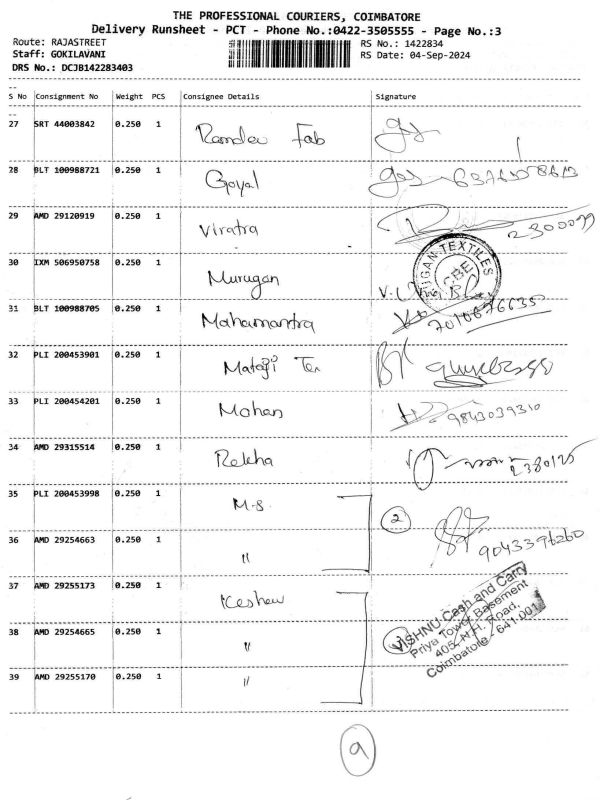 THE PROFESSIONAL COURIERS, COIMBATORE
Delivery Runsheet - PCT - Phone No.:0422-3505555 - Page No.:3
Route: RAJASTREET RS No.: 1422834
Staff: GOKILAVANI RS Date: 04-Sep-2024
DRS No.: DCJB142283403
S No Consignment No Weight PCS Consignee Details Signature
27 SRT 44003842 0.250 1 Ramdev Fab
28 BLT 100988721 0.250 1 Goyal
29 AMD 29120919 0.250 1 Viratra 2300099
30 IXM 506950758 0.250 1 Murugan
TEXTILES CBE
31 BLT 100988705 0.250 1 Mahamantra
32 PLI 200453901 0.250 1 Mataji Tex
33 PLI 200454201 0.250 1 Mohan 9843039310
34 AMD 29315514 0.250 1 Rekha 2380125
35 PLI 200453998 0.250 1 M.S. 2
36 AMD 29254663 0.250 1 " 9043396260
37 AMD 29255173 0.250 1 Keshav
38 AMD 29254665 0.250 1 "
39 AMD 29255170 0.250 1 "
VISHNU Cash and Carry
Priya Tower Basement
405, N.H. Road,
Coimbatore - 641 001
9